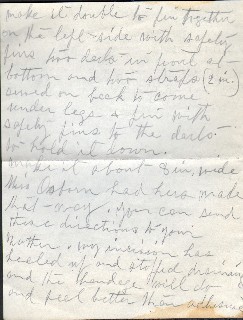 make it double to pin together
on the left-side with safety
pins two darts in front at
bottom and two straps (2 in.)
sewed on back to come
under legs & pin with
safety pins to the darts
to hold it down.
Make it about 8 in. wide
Mrs Osborn had hers made
that-way. You can send
these directions to your
mother. My incision has
healed up and stopped draining
and the bandage will do
and feel better than adhesive